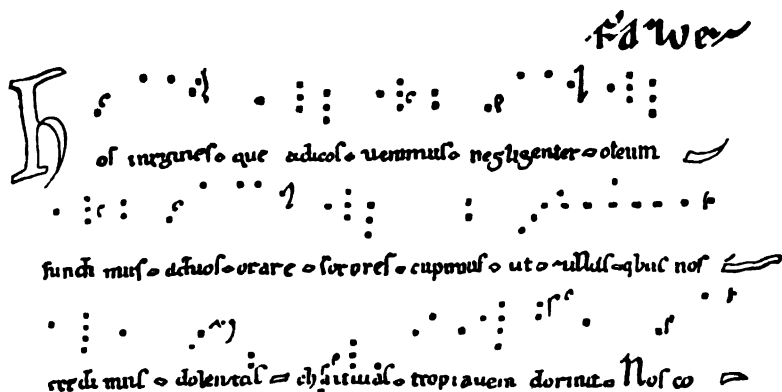 Fatue
Nos uirgines que aduos uenimus negligenter oleum
fundi mus aduos orare sorores cupimus ut illas qbus nos
credi mus dolentas chaitiuas trop i auem dormit Nos co